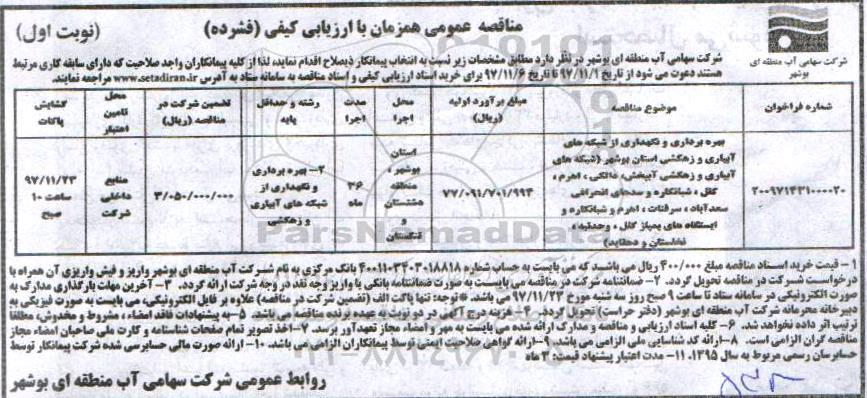 مناقصه عمومی همزمان با ارزیابی کیفی (فشرده)
(نوبت اول)
شرکت سهامی آب منطقه ای
بوشهر
شرکت سهامی آب منطقه ای بوشهر در نظر دارد مطابق مشخصات زیر نسبت به انتخاب پیمانکار ذیصلاح اقدام نماید، لذا از کلیه پیمانکاران واجد صلاحیت که دارای سابقه کاری مرتبط
هستند دعوت می شود از تاریخ ۹۷/۱۱/۱ تا تاریخ ۹۷/۱۱/۶ برای خرید اسناد ارزیابی کیفی و اسناد مناقصه به سامانه ستاد به آدرس www.setadiran.ir مراجعه نمایند.
شماره فراخوان
موضوع مناقصه
مبلغ برآورد اولیه
(ریال)
محل
اجرا
مدت
اجرا
رشته و حداقل
پایه
تضمین شرکت در
مناقصه (ریال)
محل
تامین
اعتبار
گشایش
پاکات
۲۰۰۹۷۱۴۳۱۰۰۰۰۲۰
بهره برداری و نگهداری از شبکه های
آبیاری و زهکشی استان بوشهر (شبکه های
آبیاری و زهکشی آبپخش، دالکی ، اهرم ،
کلل ، شبانکاره و سدهای انحرافی
سعدآباد ، سرقنات ، اهرم و شبانکاره و
ایستگاه های پمپاژ کلل ، وحدتیه ،
نخلستان و دهقاید)
۷۷/۰۹۱/۷۰۱/۹۹۴
استان
بوشهر ،
منطقه
دشتستان
و
تنگستان
۳۶
ماه
۲- بهره برداری
و نگهداری از
شبکه های آبیاری
و زهکشی
۳/۰۵۰/۰۰۰/۰۰۰
منابع
داخلی
شرکت
۹۷/۱۱/۲۳
ساعت ۱۰
صبح
۱- قیمت خرید اسناد مناقصه مبلغ ۴۰۰/۰۰۰ ریال می باشد که می بایست به حساب شماره ۴۰۰۱۱۰۳۴۰۳۰۱۸۸۱۸ بانک مرکزی به نام شرکت آب منطقه ای بوشهر واریز و فیش واریزی آن همراه با
درخواست شرکت در مناقصه تحویل گردد. ۲- ضمانتنامه شرکت در مناقصه می بایست به صورت ضمانتنامه بانکی یا واریز وجه نقد در وجه شرکت ارائه گردد. ۳- آخرین مهلت بارگذاری مدارک به
صورت الکترونیکی در سامانه ستاد تا ساعت ۹ صبح روز سه شنبه مورخ ۹۷/۱۱/۲۳ می باشد. توجه: تنها پاکت الف (تضمین شرکت در مناقصه) علاوه بر فایل الکترونیکی، می بایست به صورت فیزیکی به
دبیرخانه محرمانه شرکت آب منطقه ای بوشهر (دفتر حراست) تحویل گردد. ۴- هزینه درج آگهی در دو نوبت به عهده برنده مناقصه می باشد. ۵- به پیشنهادات فاقد امضاء ، مشروط و مخدوش، مطلقا
ترتیب اثر داده نخواهد شد. ۶- کلیه اسناد ارزیابی و مناقصه و مدارک ارائه شده می بایست به مهر و امضاء مجاز تعهدآور برسد. ۷-اخذ تصویر تمام صفحات شناسنامه و کارت ملی صاحبان امضاء مجاز
مناقصه گران الزامی است. ۸-ارائه کد شناسایی ملی الزامی می باشد. ۹-ارائه گواهی صلاحیت ایمنی توسط پیمانکاران الزامی می باشد. ۱۰- ارائه صورت مالی حسابرسی شده شرکت پیمانکار توسط
حسابرسان رسمی مربوط به سال ۱۳۹۵. ۱۱- مدت اعتبار پیشنهاد قیمت: ۳ ماه
روابط عمومی شرکت سهامی آب منطقه ای بوشهر
ParsNamadData